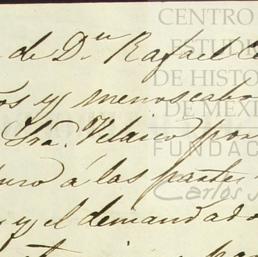 de Dn Rafael
os y menos cabo
Sra. Velasco por
uro á las partes
y el demandado
CENTRO
ESTUDI
DE HISTO
DE MÉXI
FUNDAC
Carlos